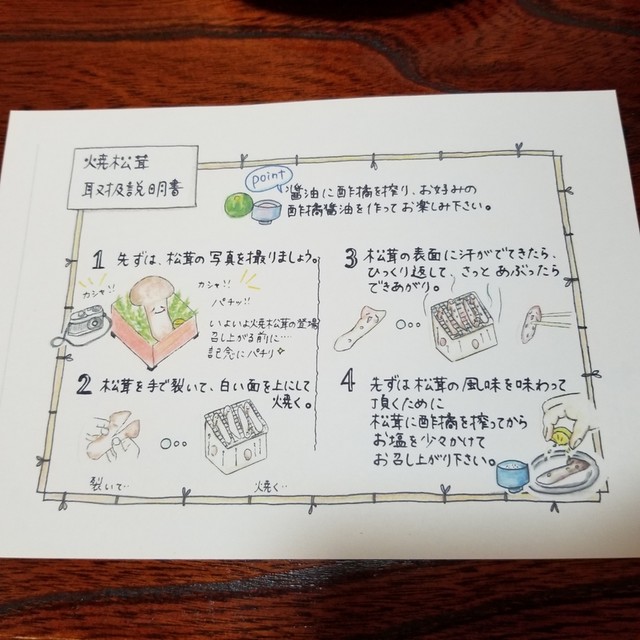 焼松茸
取扱説明書
point
醤油に酢橘を搾り、お好みの
酢橘醤油を作ってお楽しみ下さい。
1 先ずは、松茸の写真を撮りましょう。
カシャ!!
カシャ!!
パチッ!!
いよいよ焼松茸の登場
召し上がる前に…
記念にパチリ
2 松茸を手で裂いて、白い面を上にして
焼く。
裂いて…
焼く…
3 松茸の表面に汗がでてきたら、
ひっくり返して、さっとあぶったら
できあがり。
4 先ずは松茸の風味を味わって
頂くために
松茸に酢橘を搾ってから
お塩を少々かけて
お召し上がり下さい。